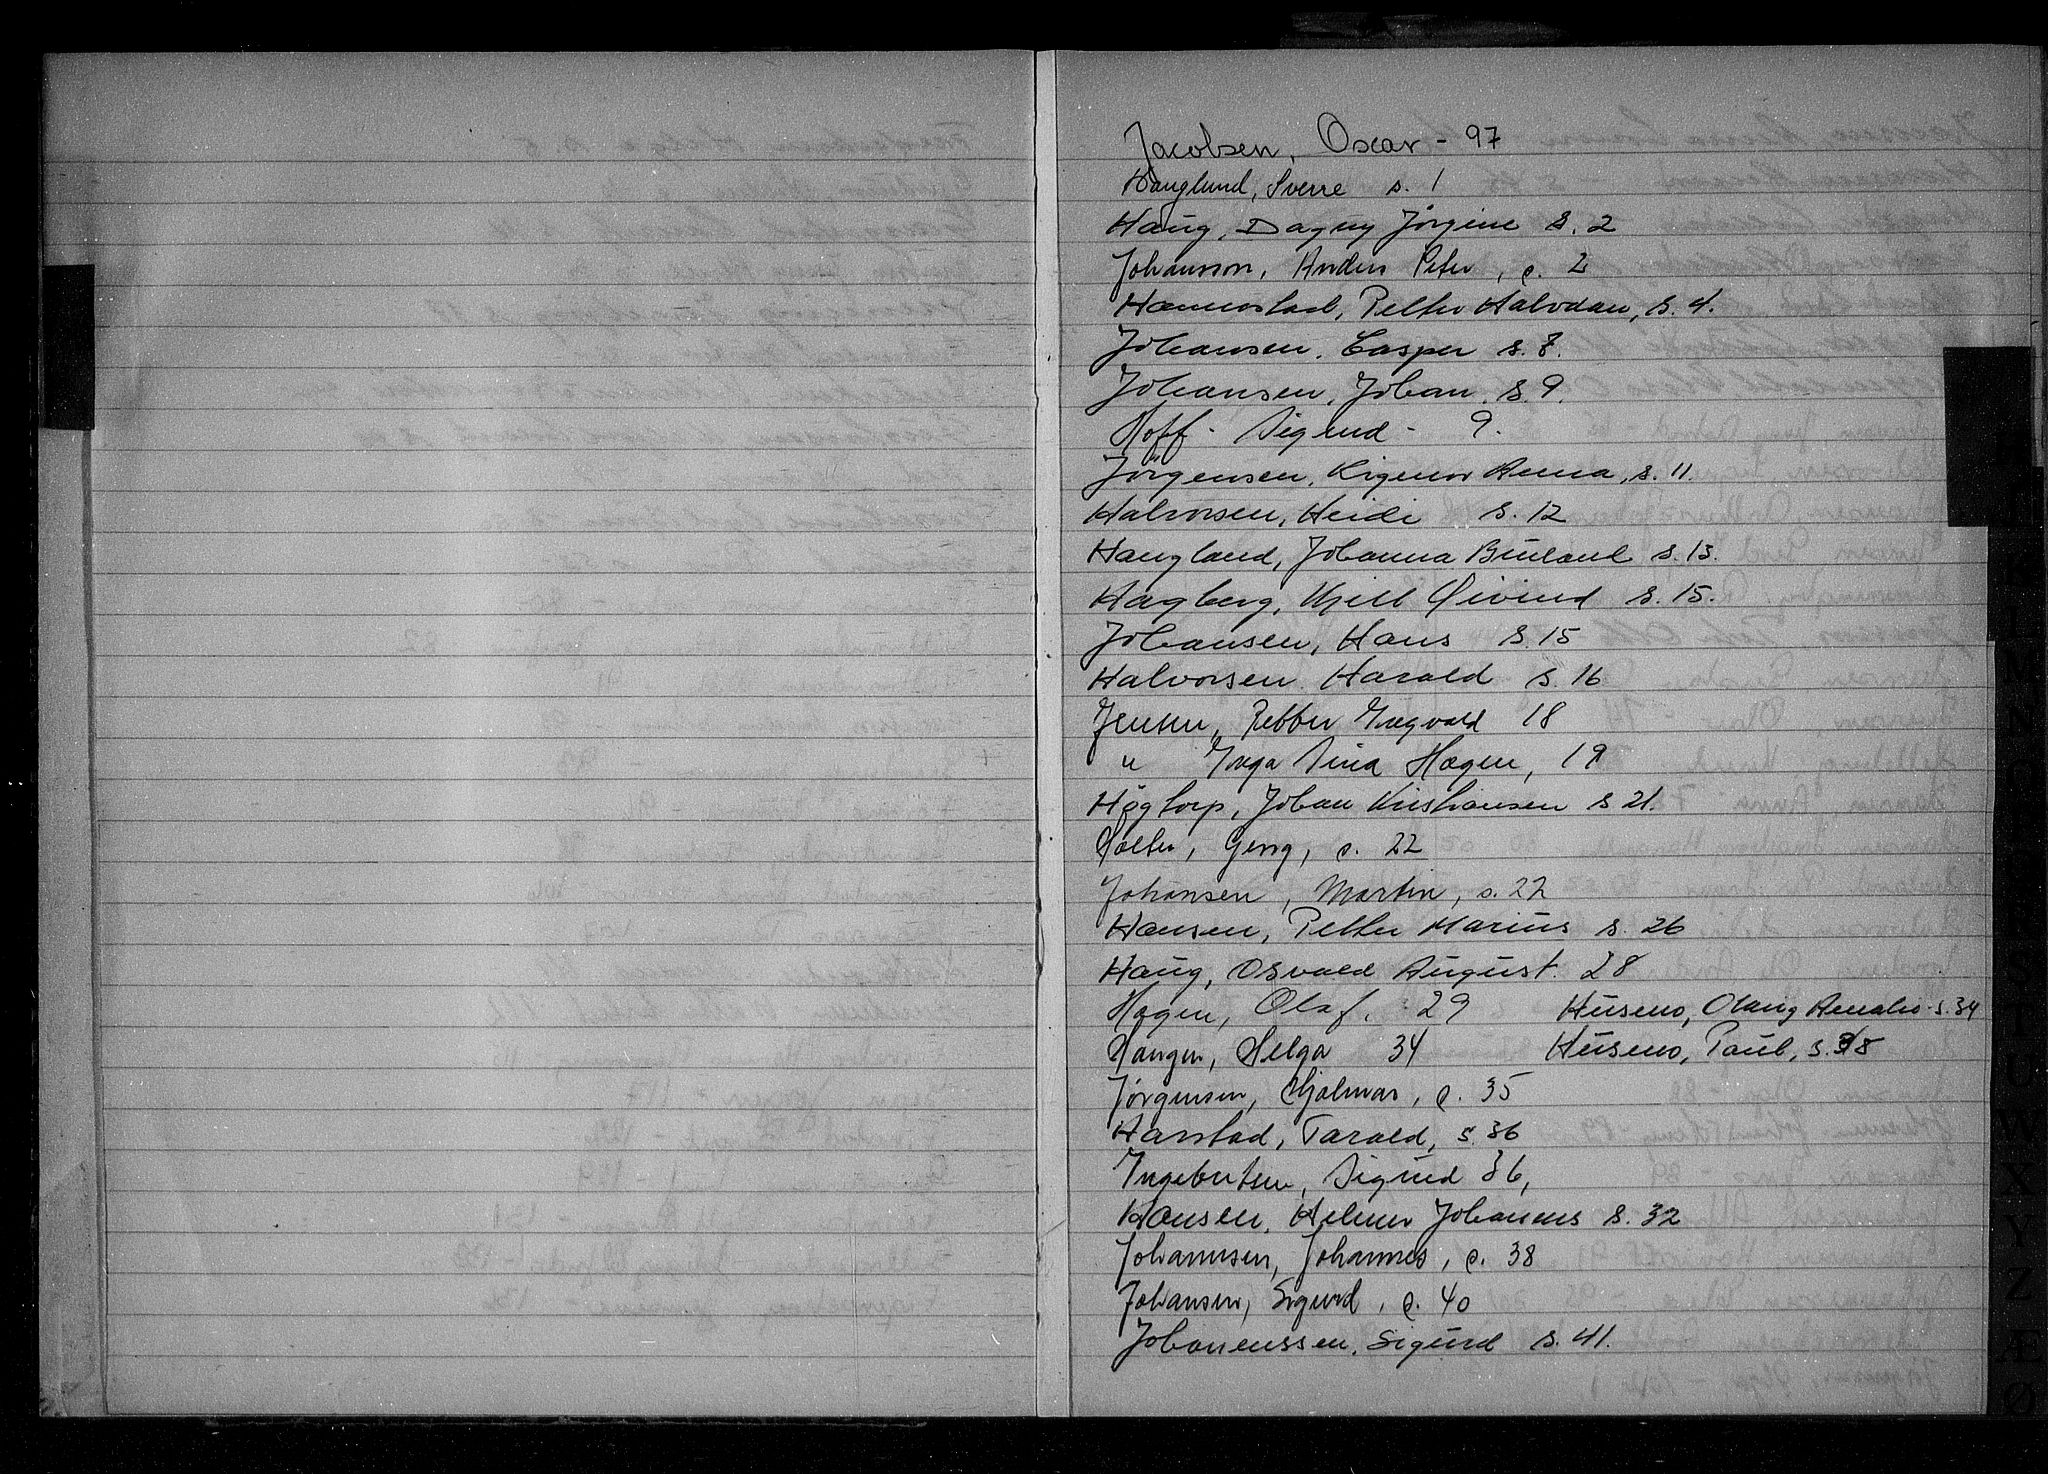 Jacobsen, Oscar - 97
Hauglund, Sverre s. 1
Haug, Dagny Jörgine s. 2
Johansson, Anders Peter, s. 2
Hammerstad, Petter Halvdan, s. 4.
Johansen, Casper s. 8.
Johansen, Johan, s. 9.
Hoff - Sigurd - 9.
Jörgensen, Rigmor Anna, s. 11.
Halvorsen, Heidi s. 12
Haugland, Johanna s. 13.
Hagberg, Kjell Øivind s. 15.
Johansen, Hans s. 15
Halvorsen Harald s. 16
Jensen, Petter Ingvald 18
" Inga Sina Hagen, 19
Högtorp, Johan Kristiansen s 21.
Holter, Georg, s. 22
Johansen, Martin, s. 22
Hansen, Petter Marius s. 26
Haug, Osvald August. 28
Hagen, Olaf. 29 Huseno, Olaug s. 34
Haugen, Helga 34 Huseno, Paul, s. 38
Jørgensen, Hjalmar, s. 35
Harstad, Tarald, s. 36
Ingebretsen, Sigurd 36,
Hansen, Helmer Johannes s. 32
Johannesen, Johannes, s. 38
Johansen, Sigurd, s. 40
Johannessen, Sigurd s. 41.
W
X
Y
Z
Æ
Ø